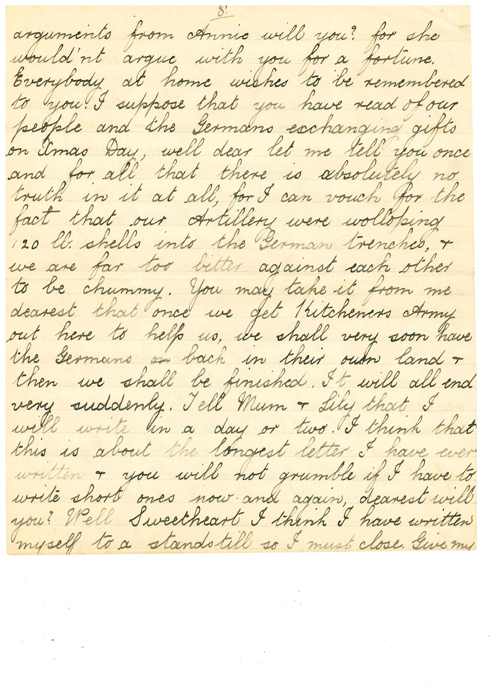 8.
arguments from Annie will you? for she
would'nt argue with you for a fortune.
Everybody at home wishes to be remembered
to you. I suppose that you have read of our
people and the Germans exchanging gifts
on Xmas Day, well dear let me tell you once
and for all that there is absolutely no
truth in it at all, for I can vouch for the
fact that our Artillery were wolloping
120 lb. shells into the German trenches, +
we are far too bitter against each other
to be chummy. You may take it from me
dearest that once we get Kitcheners Army
out here to help us, we shall very soon have
the Germans back in their own land +
then we shall be finished. It will all end
very suddenly. Tell Mum + Lily that I
will write in a day or two. I think that
this is about the longest letter I have ever
written + you will not grumble if I have to
write short ones now and again, dearest will
you? Well Sweetheart I think I have written
myself to a standstill so I must close. Give my